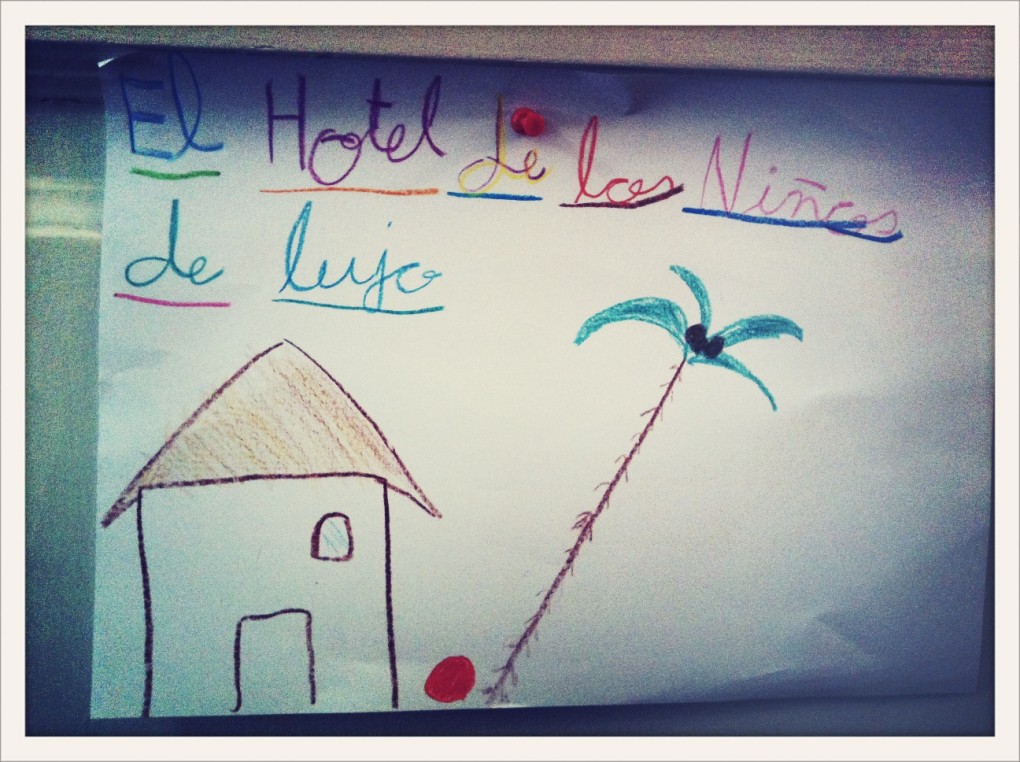 El Hotel de los Niños
de lujo